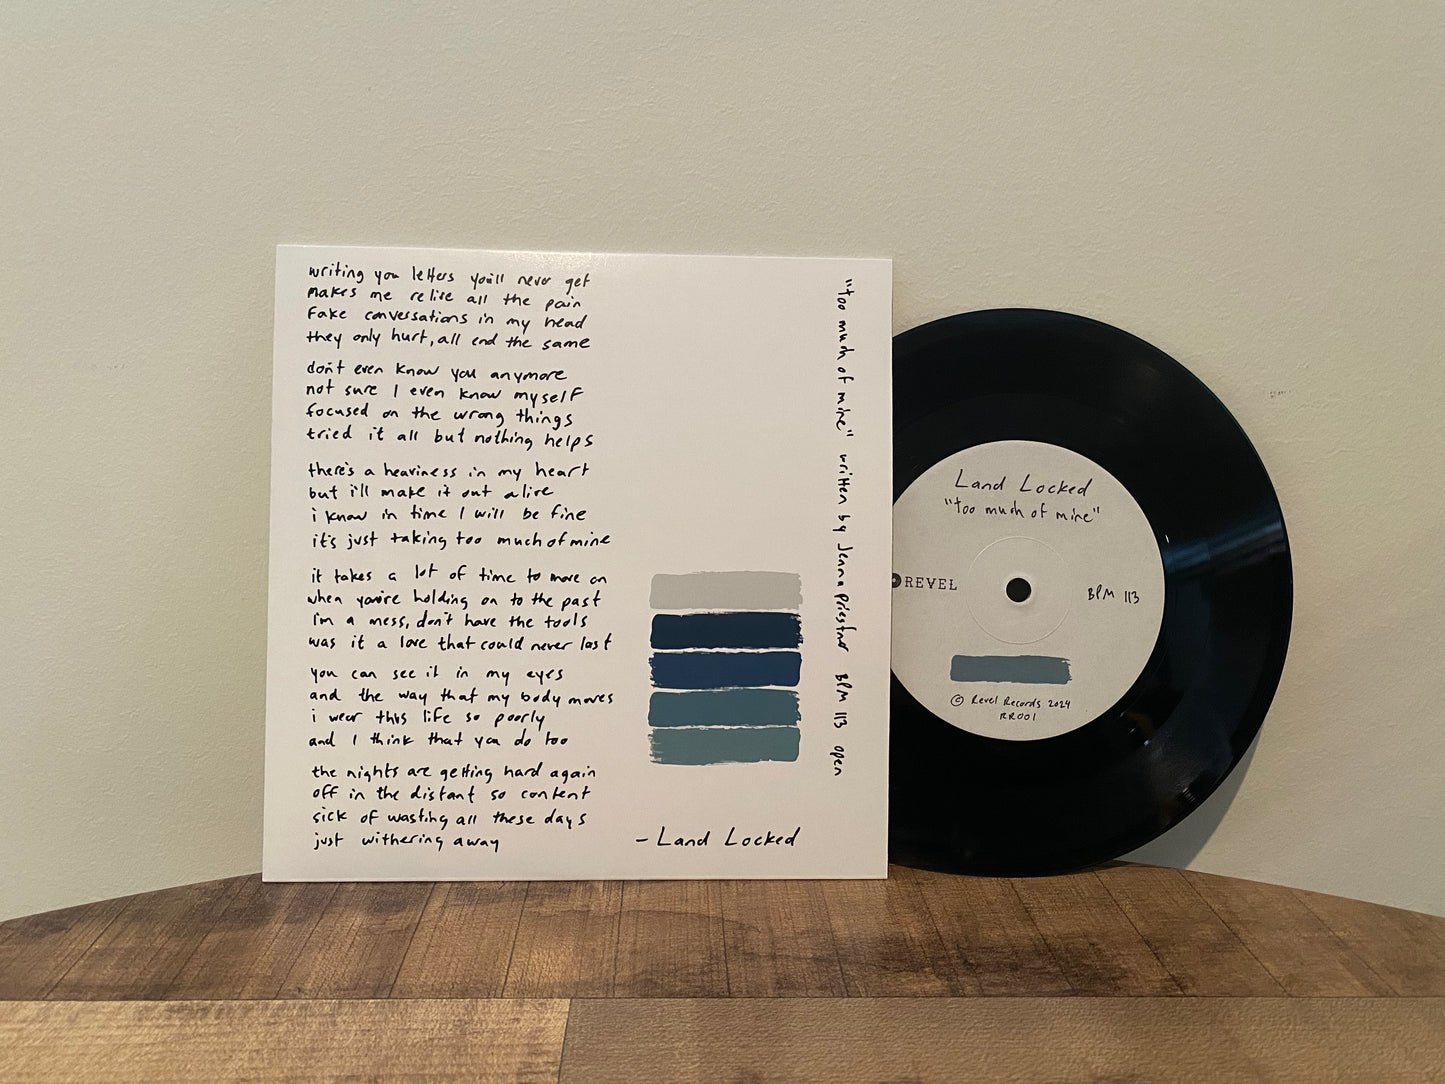 writing you letters you'll never get
makes me relive all the pain
Fake conversations in my head
they only hurt, all end the same
don't even know you anymore
not sure I even know myself
focused on the wrong things
tried it all but nothing helps
there's a heaviness in my heart
but i'll make it out alive
i know in time I will be fine
it's just taking too much of mine
it takes a lot of time to move on
when you're holding on to the past
I'm a mess, don't have the tools
was it a love that could never last
you can see it in my eyes
and the way that my body moves
i wear this life so poorly
and I think that you do too
the nights are getting hard again
off in the distant so content
sick of wasting all these days
just withering away
- Land Locked
"too much of mine" written by Jenna Priestner BPM 113 open
Land Locked
"too much of mine"
REVEL
BPM 113
© Revel Records 2024
RR001